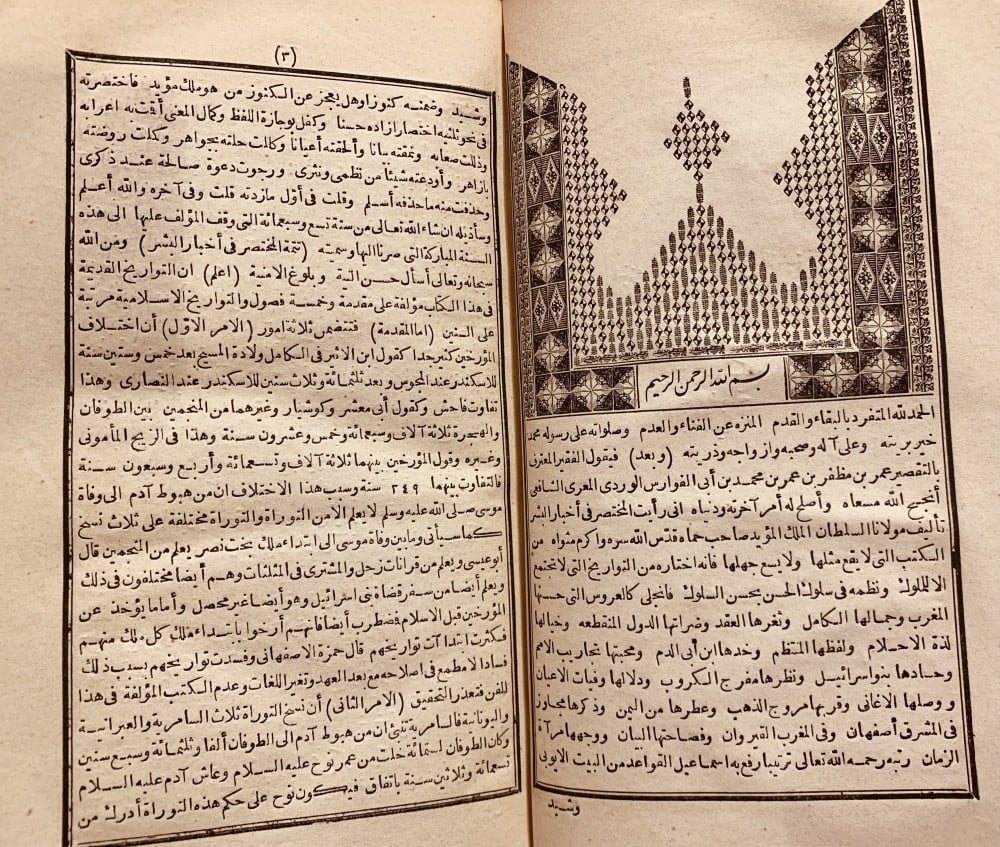 بسم الله الرحمن الرحيم
الحمد لله المتفرد بالبقاء والقدم المنزه عن الفناء والعدم وصلواته على رسوله محمد
خير بريته وعلى آله وصحبه وازواجه وذريته (وبعد) فيقول الفقير المعترف
بالتقصير عمر بن مظفر بن عمر بن محمد بن أبى الفوارس الوردى المعرى الشافعى
أنجح الله مسعاه وأصلح له أمر آخرته ودنياه انى رأيت المختصر فى أخبار البشر
تأليف مولانا السلطان الملك المؤيد صاحب حماه قدّس الله سره واكرم مثواه من
الكتب التى لا يقع مثلها ولا يسع جهلها فانه اختاره من التواريخ التى لا تجتمع
الا للملوك ونظمه فى سلوك الحسن بحسن السلوك فانجلى كالعروس التى حسنها
المغرب وجمالها الكامل وثغرها العقد وضراتها الدول المنقطعه وخيالها
لذة الاحلام ولفظها المنتظم وخدها ابن أبى الدم ومحبتها تجاريب الامم
وحسادها بنو اسرائيل ونظرها مفرج الكروب ودلالها وفيات الاعيان
ووصلها الاغانى وقربها مروج الذهب وعطرها من اليمن وذكرها مجاوز
فى المشرق أصفهان وفى المغرب القيروان وفصاحتها البيان ووجهها مرآة
الزمان رتبه رحمه الله تعالى ترتيبا رفع به اسماعيل القواعد من البيت الايوبى
وشيد
(٣)
وشيد وضمنه كنوزا وهل يعجز عن الكنوز من هو ملك مؤيد فاختصرته
فى نحو ثلثيه اختصارا زاده حسنا وكفل بوجازة اللفظ وكمال المعنى أقت به اعرابه
وذللت صعابه ونمقته بيانا وألحقته أعيانا وكالت حلته بجواهر وكللت روضته
بازاهر وأودعته شيئا من نظمى ونثرى ورجوت دعوة صالحة عند ذكرى
وحذفت منه ما حذفه أسلم وقلت فى أوّل ما زدته قلت وفى آخره والله أعلم
وسأذيله ان شاء الله تعالى من سنة تسع وسبعمائة التى وقف المؤلف عليها الى هذه
السنة المباركة التى صرنا اليها وسميته (تتمة المختصر فى أخبار البشر) ومن الله
سبحانه وتعالى أسأل حسن النية وبلوغ الامنية (اعلم) ان التواريخ القديمة
فى هذا الكتاب مؤلفة على مقدمة وخمسة فصول والتواريخ الاسلامية مرتبة
على السنين (اما المقدمة) فتتضمن ثلاثة امور (الامر الاوّل) أن اختلاف
المؤرخين كثير جدا كقول ابن الاثير فى الكامل ولادة المسيح بعد خمس وستين سنة
للاسكندر عند المجوس وبعد ثلثمائة وثلاث سنين للاسكندر عند النصارى وهذا
تفاوت فاحش وكقول أبى معشر وكوشيار وغيرهما من المنجمين بين الطوفان
والهجرة ثلاثة آلاف وسبعمائة وخمس وعشرون سنة وهذا فى الزيج المأمونى
وغيره وقول المؤرخين بينهما ثلاثة آلاف وتسعمائة وأربع وسبعون سنة
فالتفاوت بينهما ٢٤٩ سنة وسبب هذا الاختلاف ان من هبوط آدم الى وفاة
موسى صلى الله عليه وسلم لا يعلم الا من التوراة والتوراة مختلفة على ثلاث نسخ
كما سيأتى وما بين وفاة موسى الى ابتداء ملك بخت نصر يعلم من المنجمين قال
أبو عيسى ويعلم من قرانات زحل والمشترى فى المثلثات وهم أيضا مختلفون فى ذلك
ويعلم أيضا من سفر قضاة بنى اسرائيل وهو أيضا غير محصل وأما ما يؤخذ عن
المؤرخين قبل الاسلام فضطرب أيضا فانهم أرخوا بابتداء ملك كل ملك منهم
فكثرت ابتدا آت تواريخهم قال حمزة الاصفهانى وفسدت تواريخهم بسبب ذلك
فسادا لا مطمع فى اصلاحه مع بعد العهد وتغير اللغات وعدم الكتب المؤلفة فى هذا
للفن فتعذر التحقيق (الامر الثانى) أن نسخ التوراة ثلاث السامرية والعبرانية
واليونانية فالسامرية تنبئ ان من هبوط آدم الى الطوفان ألفا وثلثمائة وسبع سنين
وكان الطوفان لستمائة خلت من عمر نوح عليه السلام وعاش آدم عليه السلام
تسعمائة وثلاثين سنة باتفاق فيكون نوح على حكم هذه التوراة أدرك من